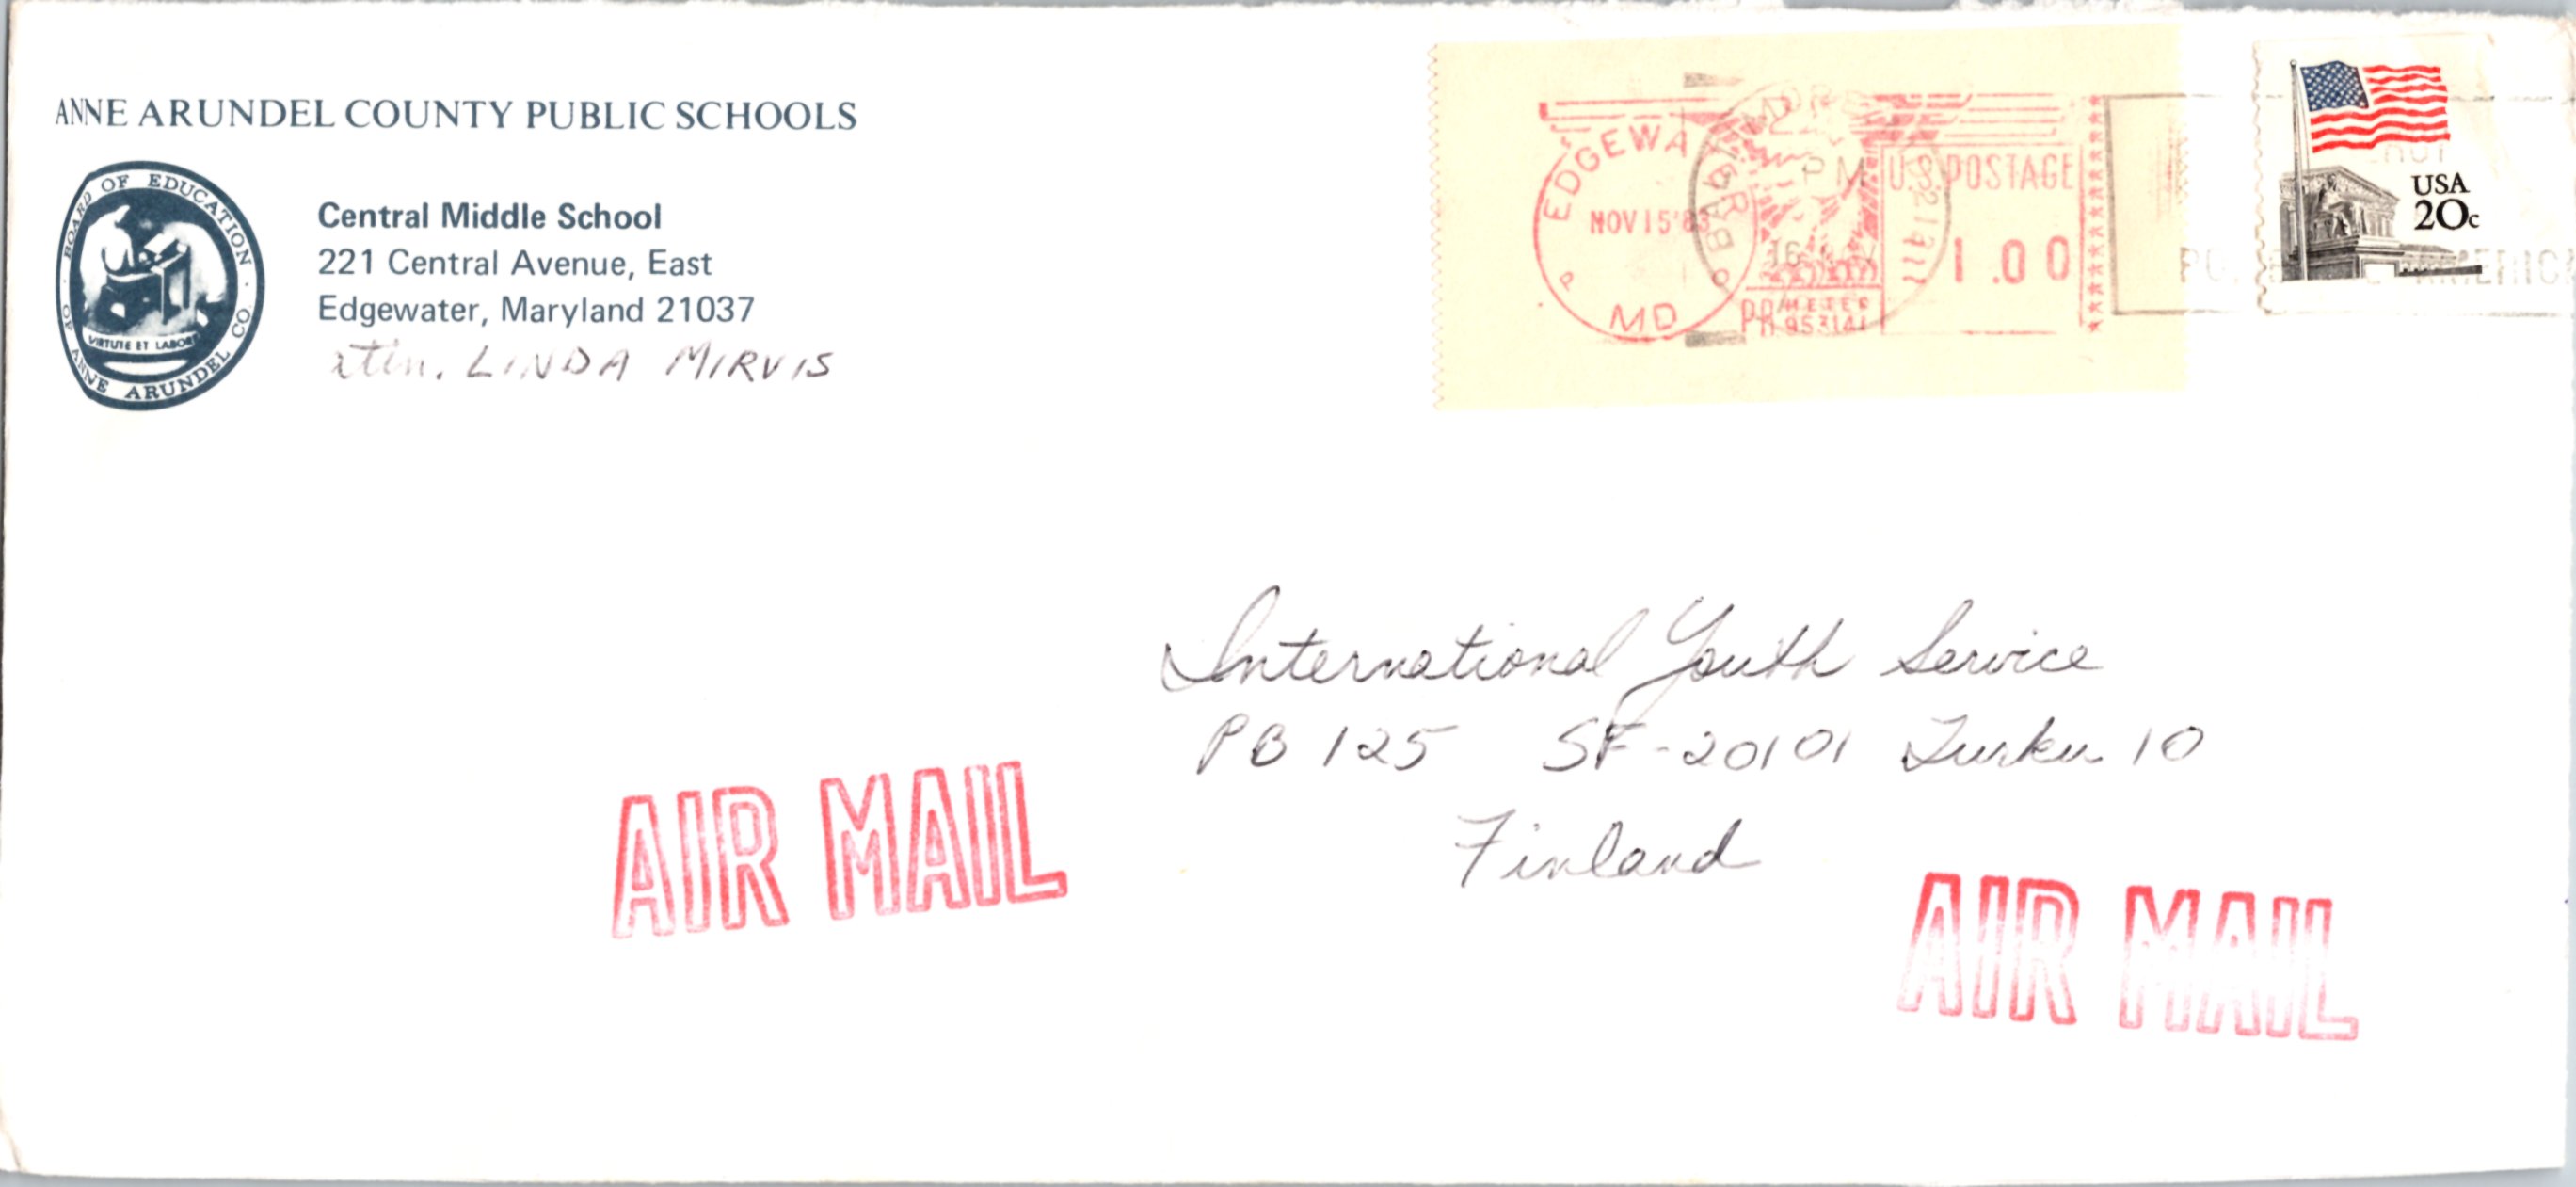 ANNE ARUNDEL COUNTY PUBLIC SCHOOLS
BOARD OF EDUCATION
OF ANNE ARUNDEL CO.
VIRTUTE ET LABORE
Central Middle School
221 Central Avenue, East
Edgewater, Maryland 21037
Attn. LINDA MIRVIS
EDGEWA
NOV 15 '83
MD
BALTIMORE
PM
16 NOV
U.S. POSTAGE
1.00
PB METER
USA
20c
International Youth Service
PB 125 SF-20101 Turku 10
Finland
AIR MAIL
AIR MAIL